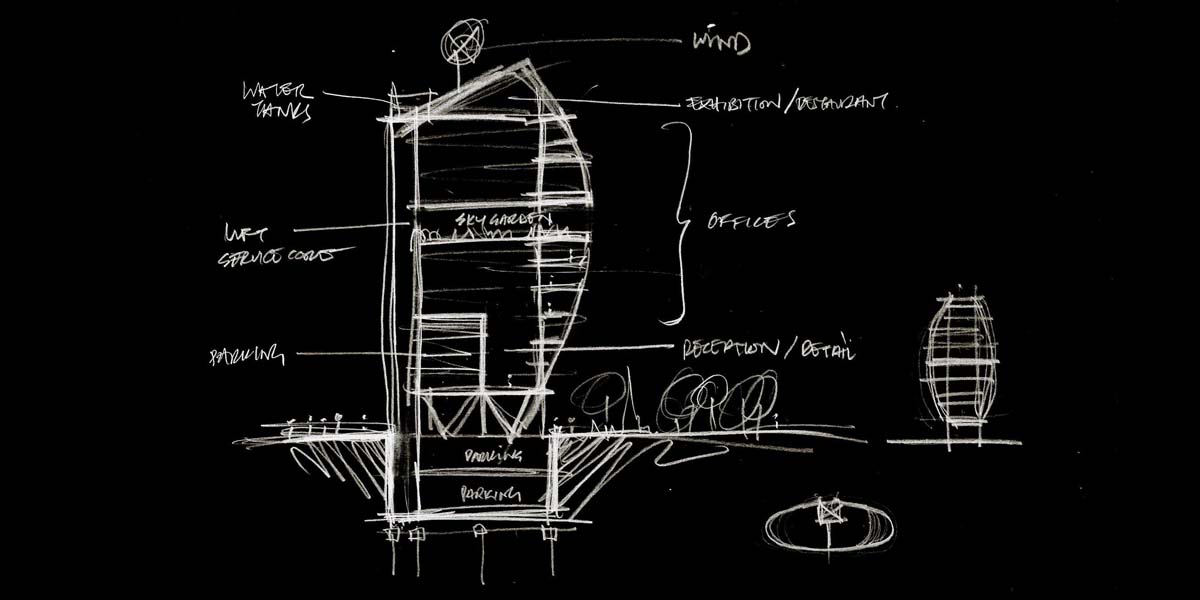 WIND
WATER
TANKS
EXHIBITION / RESTAURANT.
SKY GARDEN
OFFICES
LIFT
SERVICE CORES
PARKING
RECEPTION / RETAIL
PARKING
PARKING